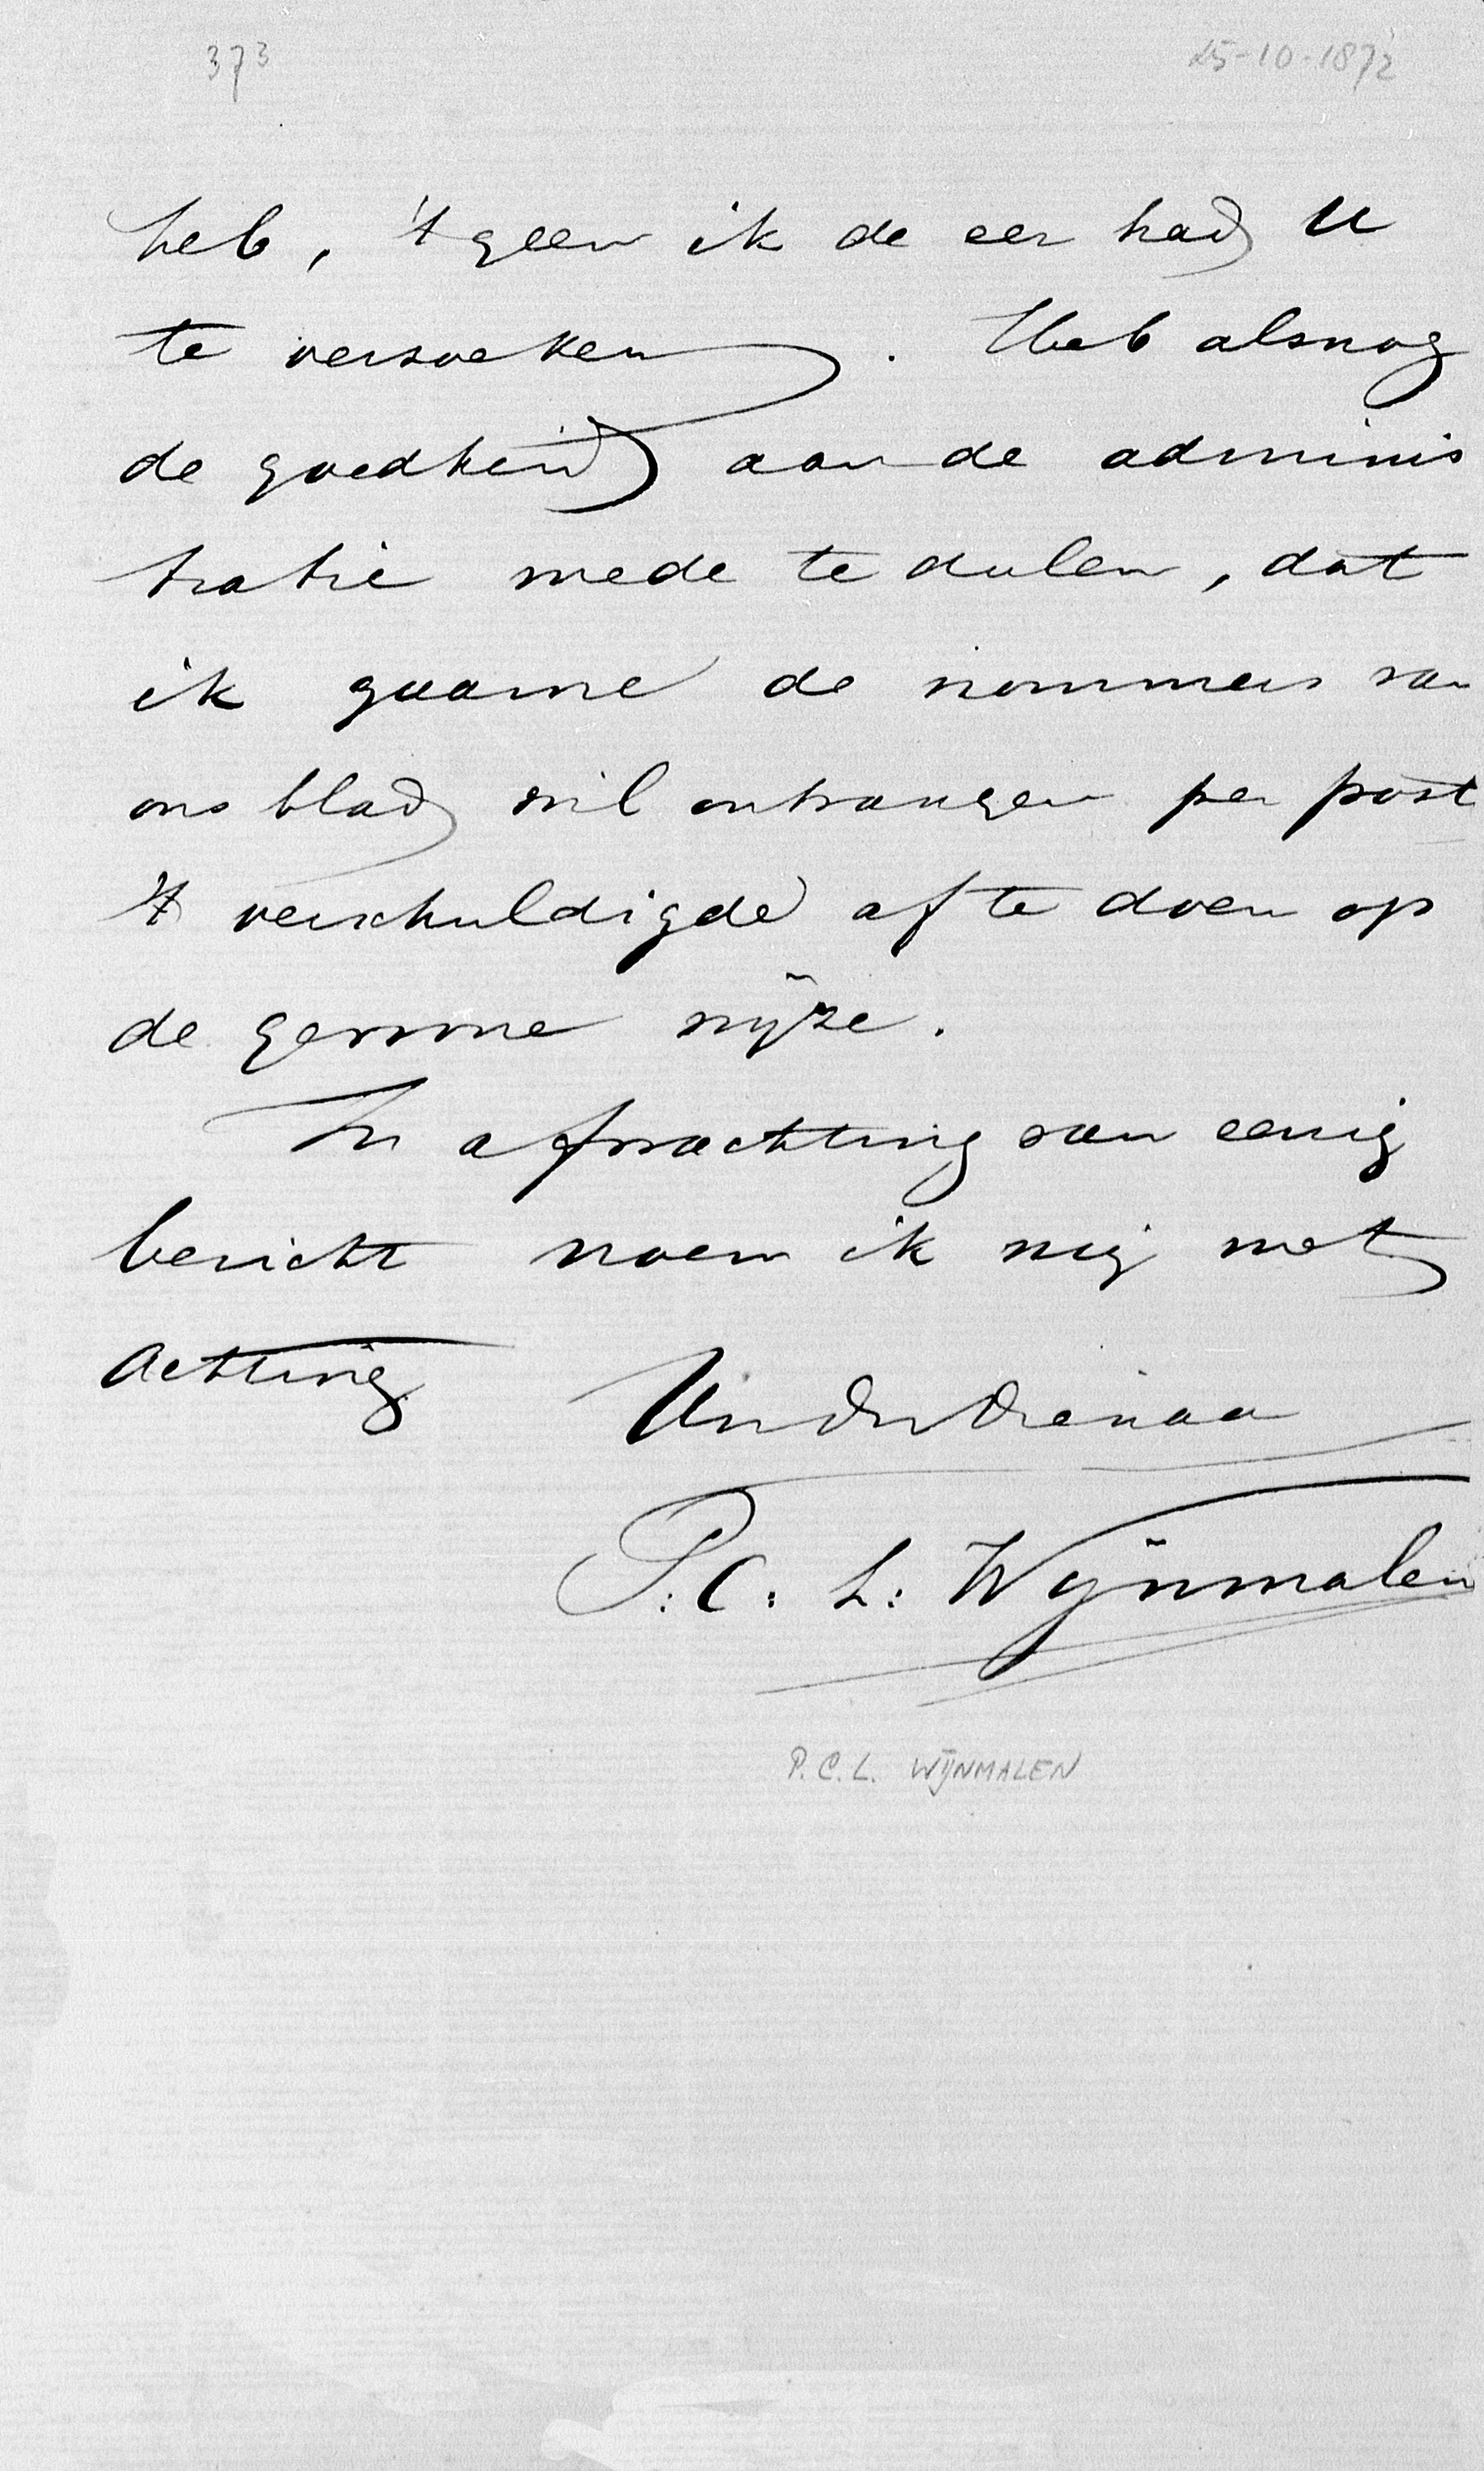 373 25-10-1872
heb, 't geen ik de eer had U
te versoeken. Heb alsnog
de goedheid aan de adminis
tratie mede te deelen, dat
ik gaarne de nommers van
ons blad wil ontvangen per post
't verschuldigde af te doen op
de gewone wijze.
In afwachting van eenig
bericht noem ik mij met
Achting
P: C: L: Wijnmalen
P.C.L. WIJNMALEN